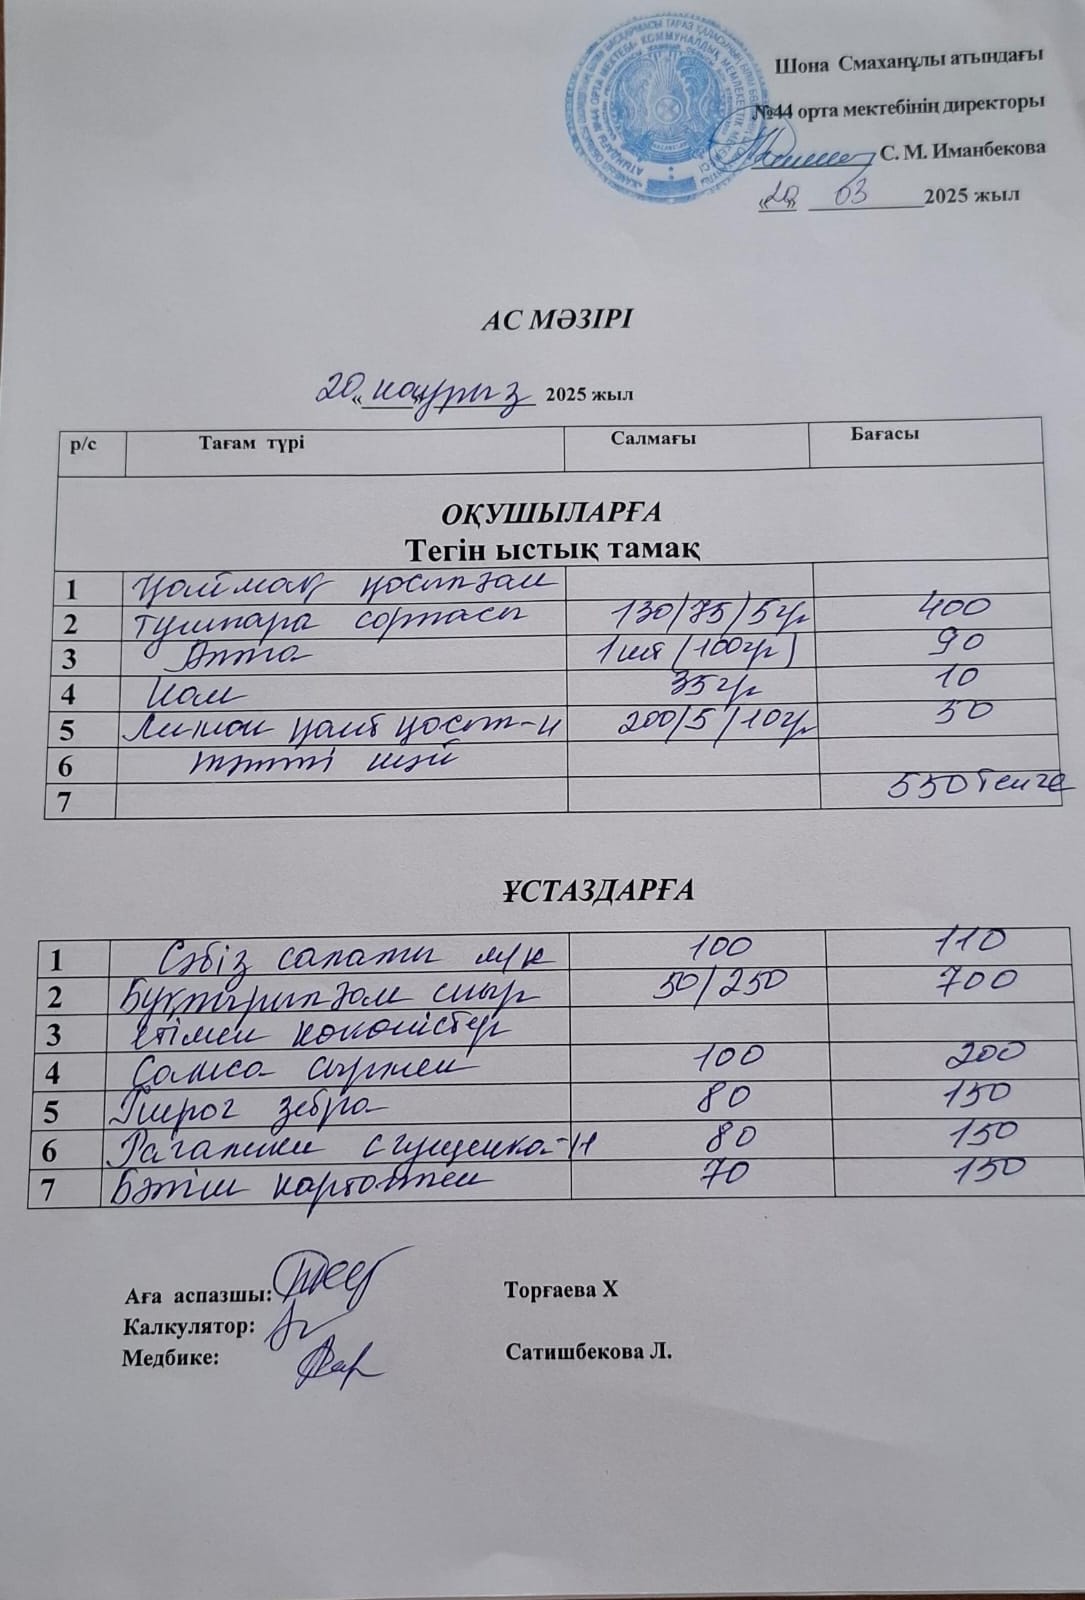 Шона Смаханұлы атындағы
№44 орта мектебінің директоры
С. М. Иманбекова
«20» 03 2025 жыл
АС МӘЗІРІ
«20 наурыз» 2025 жыл
р/с Тағам түрі Салмағы Бағасы
ОҚУШЫЛАРҒА
Тегін ыстық тамақ
1 Қаймақ қосылған
2 тушпара сорпасы 130/75/5гр 400
3 Алма 1шт (100гр) 90
4 Нан 35гр 10
5 Лимон қант қосыл-н 200/5/10гр 50
6 тәтті шәй
7 550 теңге
ҰСТАЗДАРҒА
1 Сәбіз салаты м/к 100 110
2 Бұқтырылған сиыр 50/250 700
3 етімен көкөністер
4 Самса сырмен 100 200
5 Пирог зебра 80 150
6 Рагалики сгущенка-н 80 150
7 Бәліш картоппен 70 150
Аға аспазшы: Торғаева Х
Калкулятор:
Медбике: Сатишбекова Л.